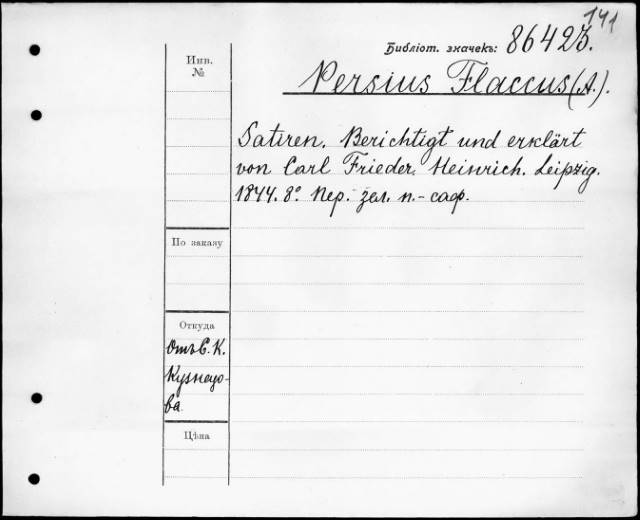 141
Библіот. значекъ: 86423.
Инв.
№
Persius Flaccus (A.).
Satiren. Berichtigt und erklärt
von Carl Frieder. Heinrich. Leipzig.
1844. 8° Пер. зел. п.-саф.
По заказу
Откуда
Отъ С. К.
Кузнецо-
ва
Цѣна